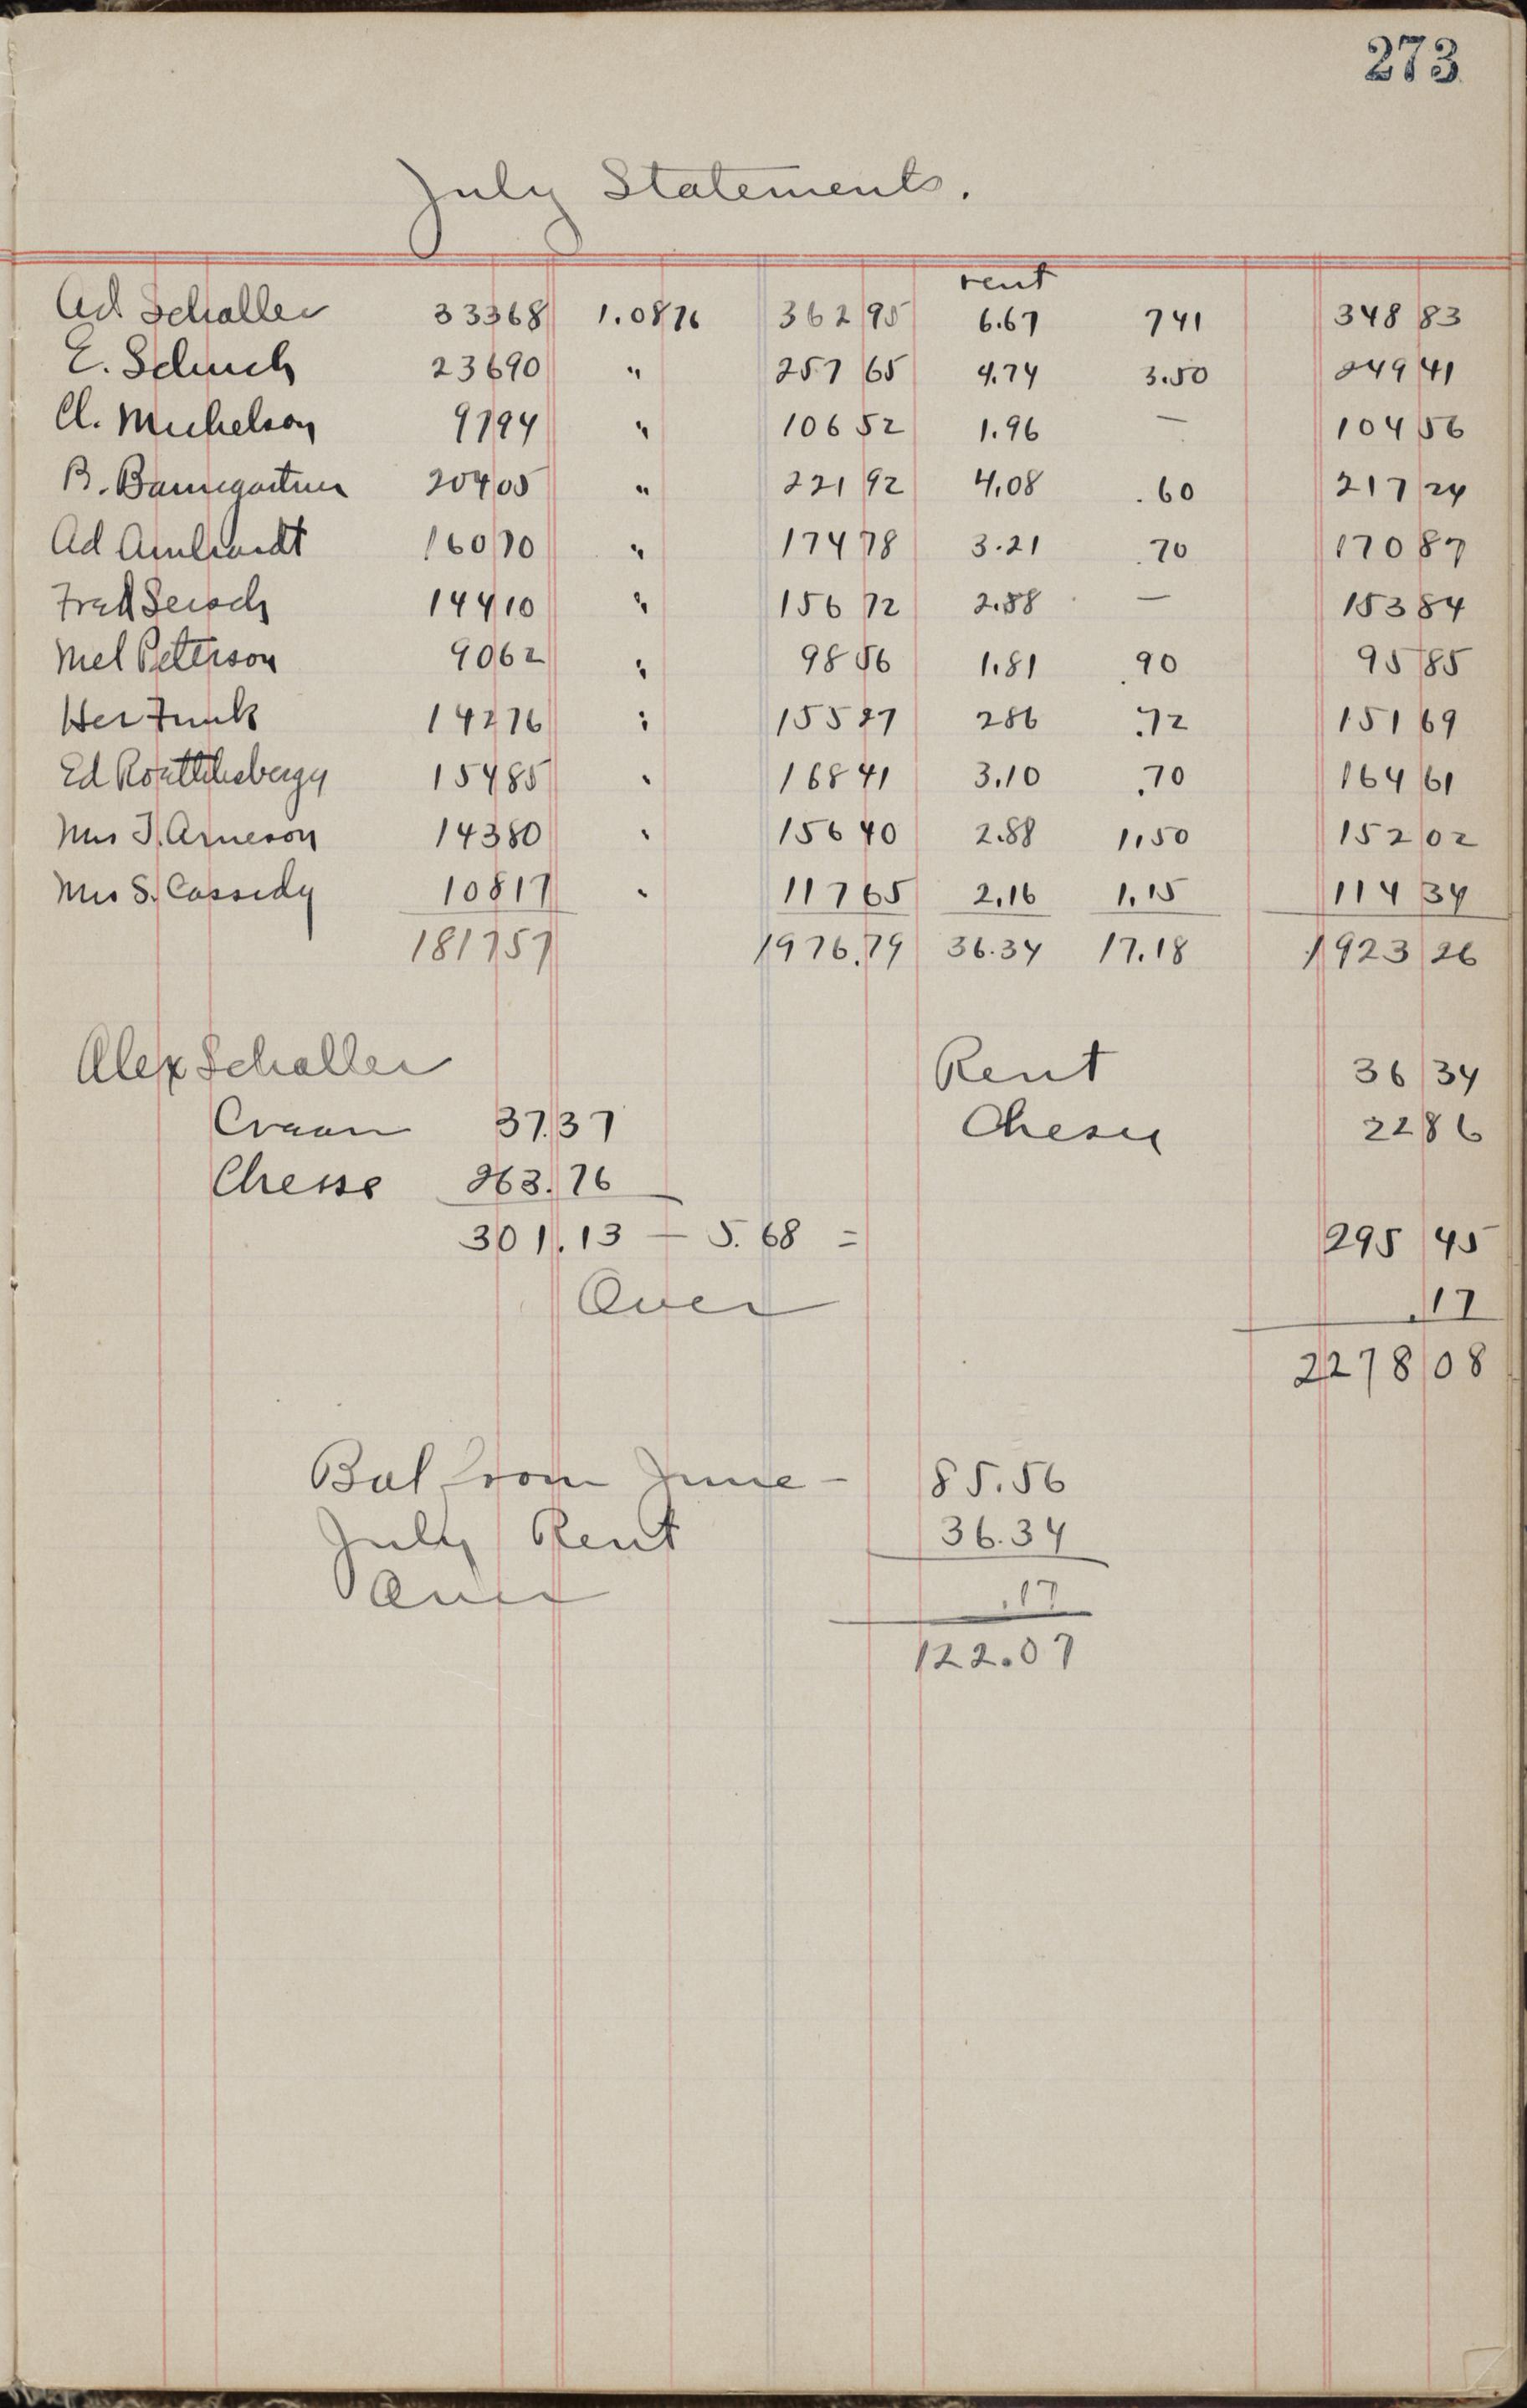 273
July Statements.
rent
Ad Schaller 33368 1.0876 362 95 6.67 741 348 83
E. Schuch 23690 " 257 65 4.74 3.50 249 41
Cl. Michelson 9794 " 106 52 1.96 — 104 56
B. Baumgartner 20405 " 221 92 4.08 .60 217 24
Ad Arnhardt 16070 " 174 78 3.21 .70 170 87
Fred 14410 " 156 72 2.88 — 153 84
Mel Peterson 9062 " 98 56 1.81 .90 95 85
Her Funk 14276 " 155 27 286 .72 151 69
Ed 15485 " 168 41 3.10 .70 164 61
Mrs J. Arneson 14380 " 156 40 2.88 1.50 152 02
Mrs S. Cassidy 10817 " 117 65 2.16 1.15 114 34
181757 1976.79 36.34 17.18 1923 26
Alex Schaller Rent 36 34
Cream 37.37 Chese 22 86
Chesse 263.76
301.13 — 5.68 = 295 45
Over .17
2278 08
Bal from June - 85.56
July Rent 36.34
Over .17
122.07